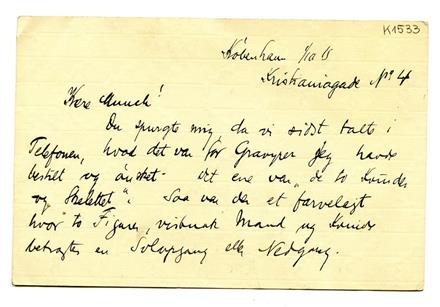 K1533
København 1/10 15
Kristianiagade Nº 4
Kære Munch!
Du spurgte mig, da vi sidst talte i
Telefonen, hvad det var for Gravyrer jeg havde
bestilt og ønsket. det ene var „de to Kvinder
og Skelettet“. Saa var der et farvelagt
hvor to Figurer, Mand og Kvinde
betragter en Solopgang eller Nedgang.